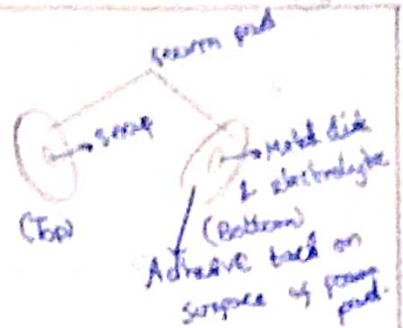 foam pad
snap
Metal disk
& electrolyte
(Top)
(Bottom)
Adhesive back on
surface of foam
pad.